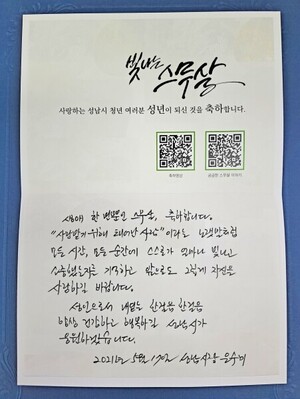 빛나는 스무살
사랑하는 성남시 청년 여러분 성년이 되신 것을 축하합니다.
축하영상
생애 한 번뿐인 스무살, 축하합니다.
"사랑받기 위해 태어난 사람" 이라는 노랫말처럼
모든 시간, 모든 순간에 스스로가 얼마나 빛나고
소중했는지를 기억하고 앞으로도 그렇게 자신을
사랑하길 바랍니다.
성인으로서 내딛는 한걸음 한걸음
항상 건강하고 행복하길 성남시가
응원하겠습니다.
2021년 5월 17일 성남시장 은수미